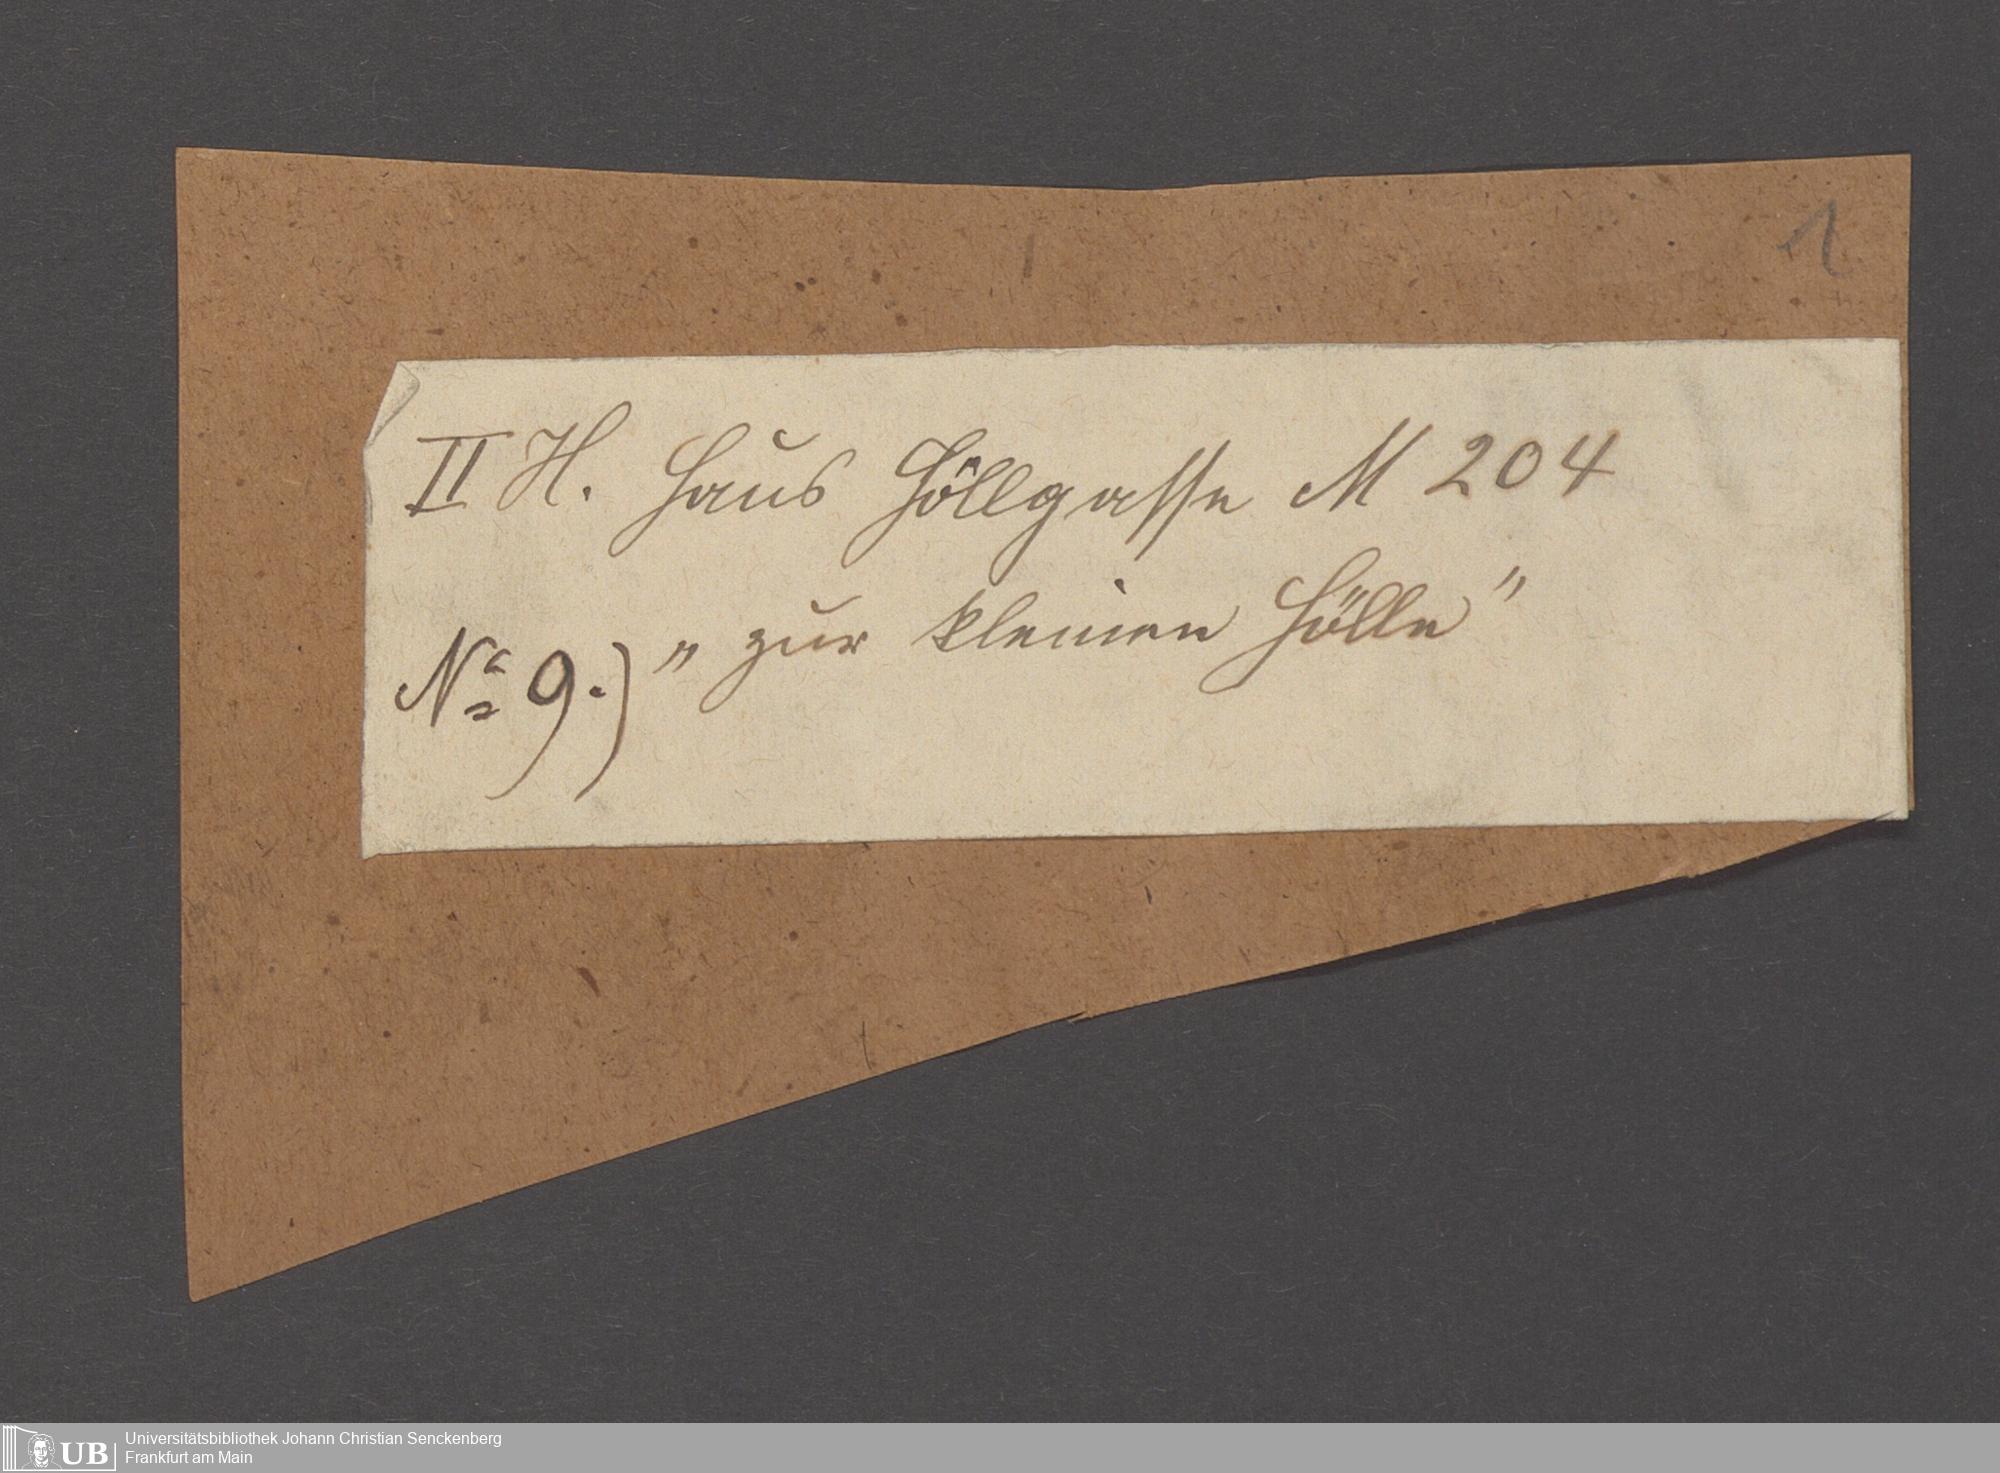 1
II H. Haus Höllgasse M 204
No 9.) "zur kleinen Hölle"
UB
Universitätsbibliothek Johann Christian Senckenberg
Frankfurt am Main